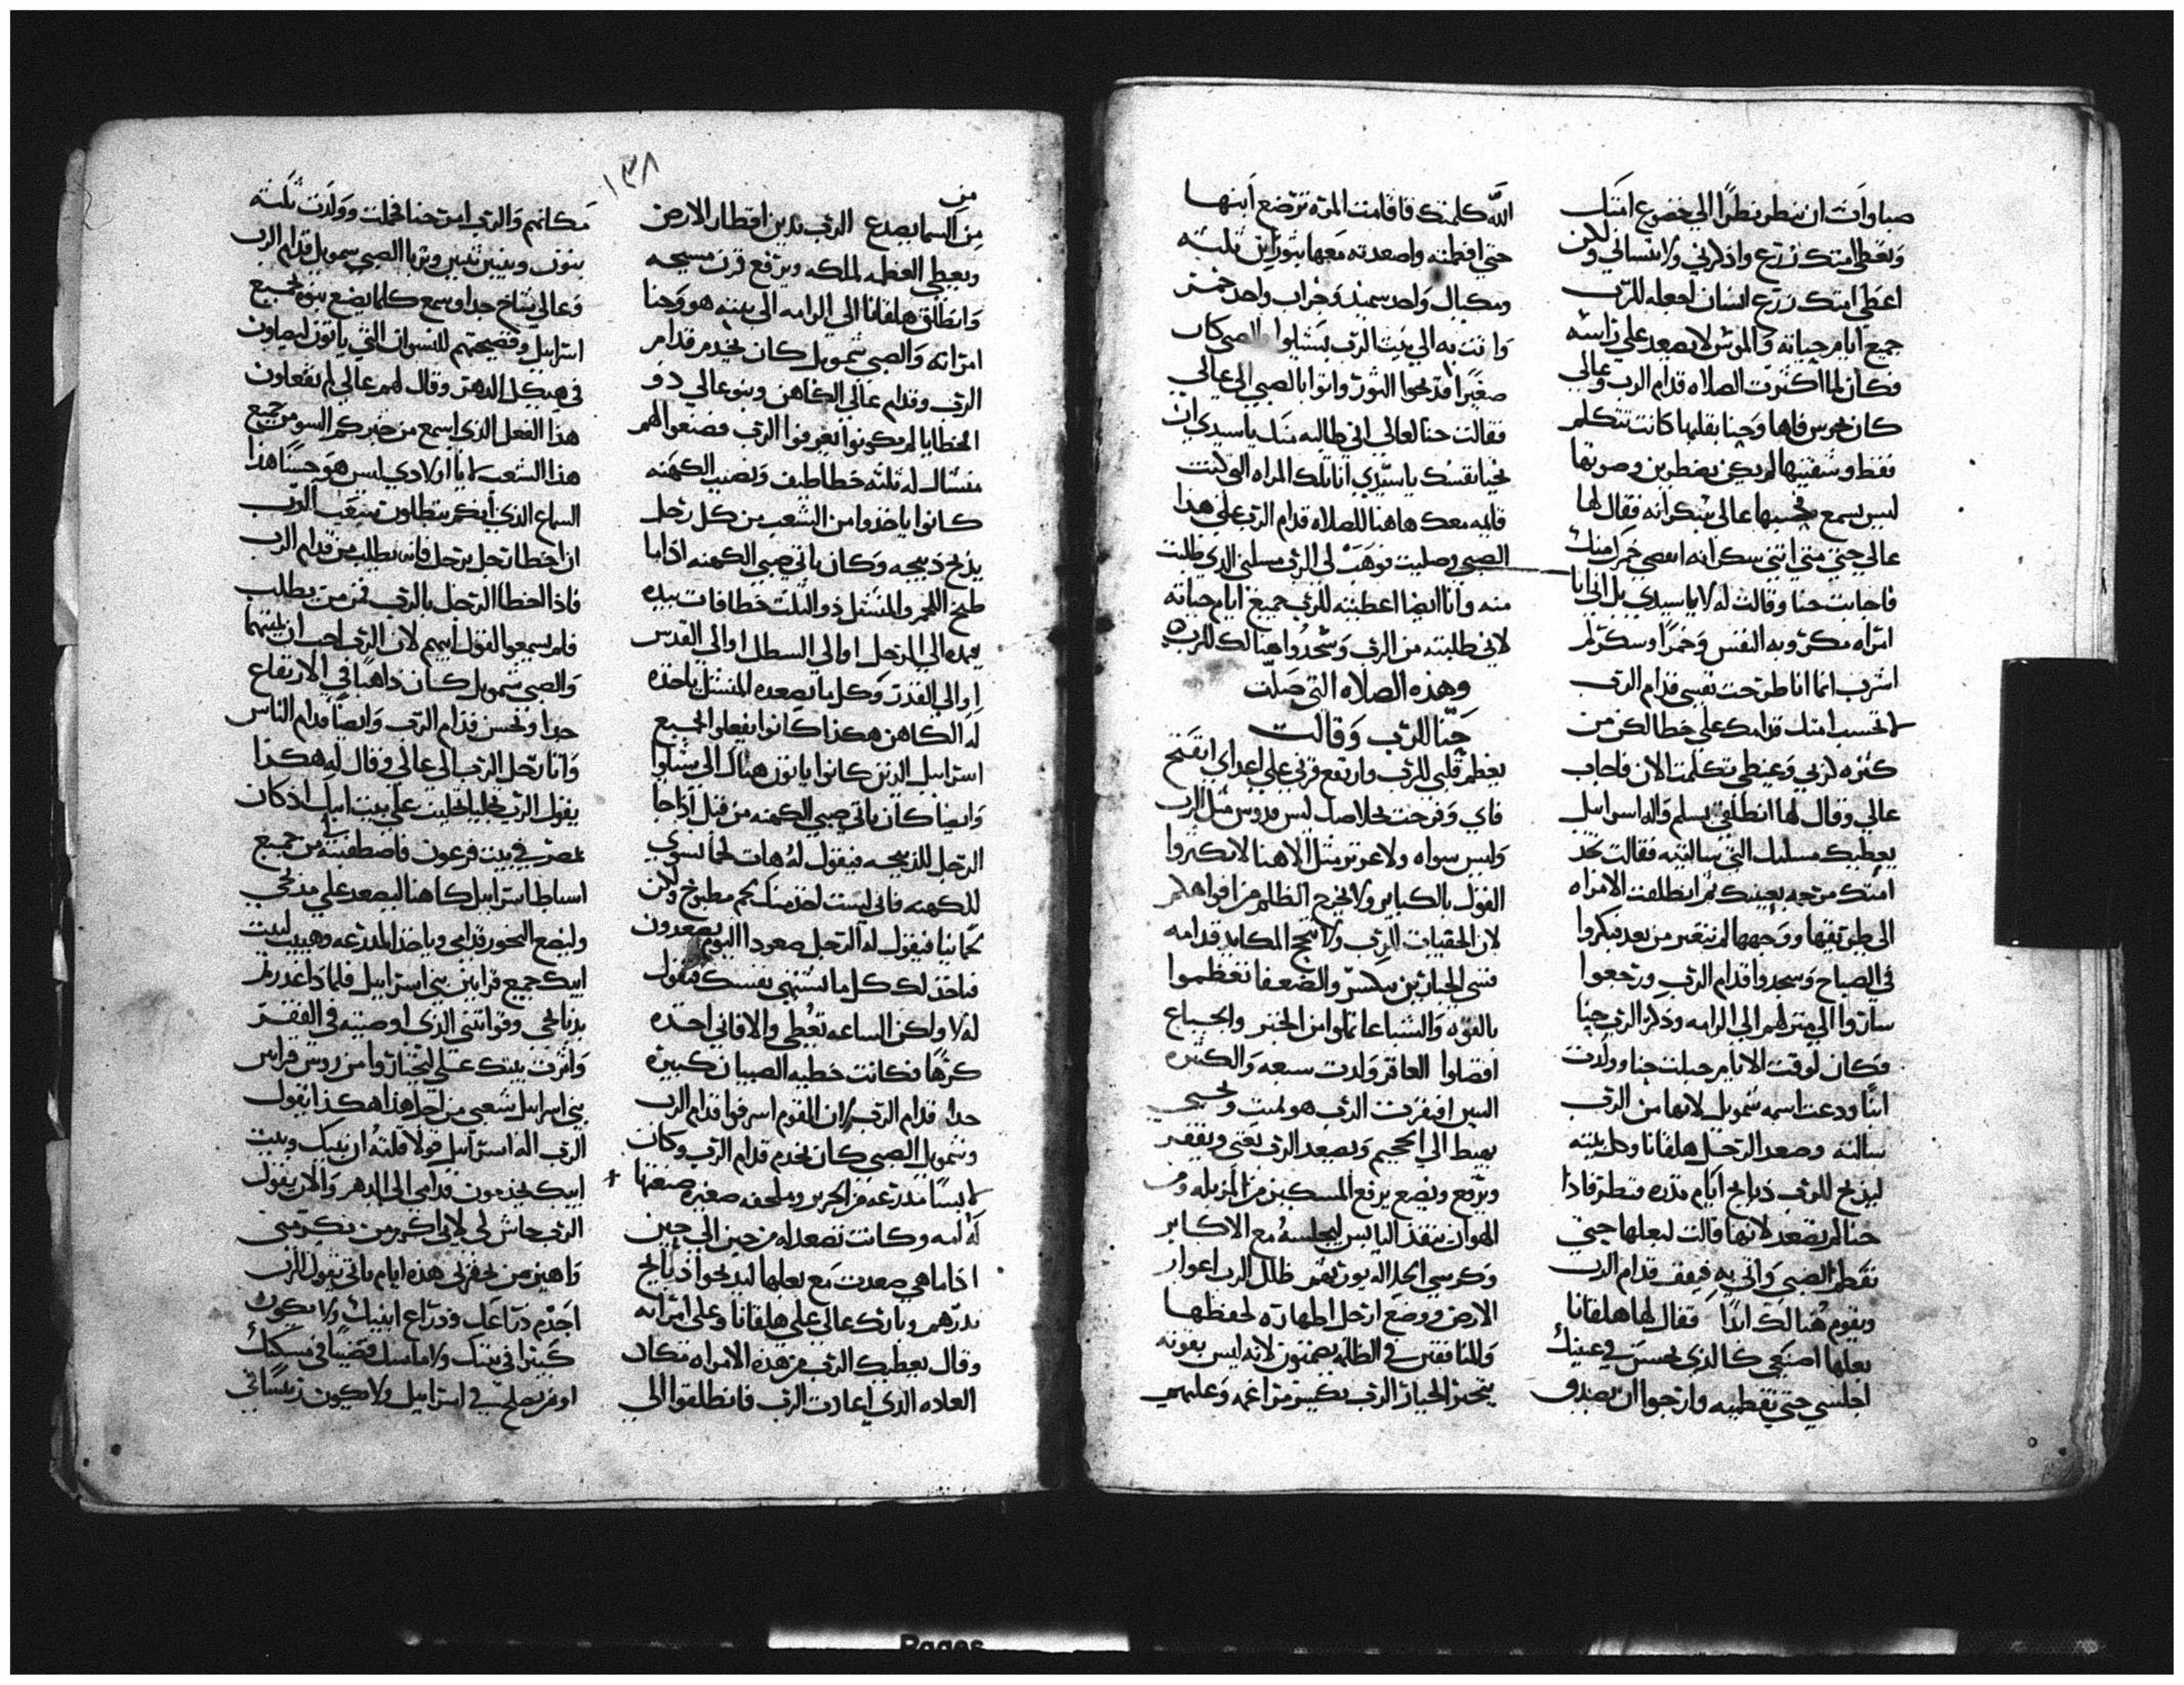 صباوات ان تنظر نظرًا الي خضوع امتك
وتعطي امتك زرع واذكرني ولا تنساني ولكن
اعطي امتك زرع انسان اجعله للرب
جميع ايام حياته والموس لا يصعد علي راسه
فكان لما اكثرت الصلاه قدام الرب وعالي
كان يحرس فاها وحنا بقلبها كانت تتكلم
فقط وشفتيها لم يكن يضطربن وصوتها
ليس يسمع فحسبها عالي سكرانه فقال لها
عالي حتي متي انتي سكرانه انفضي خمرك منك
فاجابت حنا وقالت له لا يا سيدي بل اني انا
امراه مكروبه النفس وخمرًا وسكر لم
اشرب انما انا طرحت نفسي قدام الرب
لا تحسب امتك قدامك علي خطا لكن من
كثره كربي وغيظي تكلمت الان فاجاب
عالي وقال لها انطلقي بسلم واله اسراييل
يعطيك مسلتك التي سالتيه فقالت تجد
امتك مرحمه بعينيك ثم انطلقت الامراه
الي طريقها ووجهها لم يتغير من بعد فبكروا
في الصباح وسجدوا قدام الرب ورجعوا
ساروا الي منزلهم الي الرامه وذكر الرب حنا
فكان لوقت الايام حبلت حنا وولدت
ابنًا ودعت اسمه شمويل لانها من الرب
سالته وصعد الرجل هلقانا وكل بيته
ليذبح للرب ذبايح ايام نذره
حنا لم تصعد لانها قالت لبعلها حتي
نفطم الصبي واتي به فيقف قدام الرب
ويقوم هنالك ابدًا فقال لها هلقانا
بعلها اصنعي كالذي يحسن في عينيك
اجلسي حتي تفطميه وارجوا ان يصدق
الله كلمتك فاقامت المره ترضع ابنها
حتي افطمته واصعدته معها بثور ابن ثلثه
ومكيال واحد سميد وجراب واحد خمر
واتت به الي بيت الرب بشيلوا والصبي كان
صغيرًا فذبحوا الثور واتوا بالصبي الي عالي
فقالت حنا لعالي اني طالبه منك يا سيدي ان
تحيا نفسك يا سيدي انا تلك المراه التي كنت
قايمه معك هاهنا للصلاه قدام الرب علي هذا
الصبي وصليت فوهب لي الرب مسلتي الذي طلبت
منه وانا ايضا اعطيته للرب جميع ايام حياته
لاني طلبته من الرب وسجدوا هنالك للرب
وهذه الصلاه التي صلت
حنا للرب وقالت
يعظم قلبي للرب وارتفع قرني علي اعداي انفتح
فاي وفرحت بخلاصك ليس قدوس مثل الرب
وليس سواه ولا عزيز مثل الاهنا لا تكثروا
القول بالكباير ولا يخرج الظلم من افواهكم
لان الخفيات للرب ولا تنجح المكايد قدامه
قسي الجبارين تنكسر والضعفا تعظموا
بالقوه والشباعا تملوا من الخبز والجياع
افضلوا العاقر ولدت سبعه والكثيره
البنين افتقرت الرب هو يميت ويحيي
يهبط الي الجحيم ويصعد الرب يغني ويفقر
ويرفع ويضع يرفع المسكين من المزبله ومن
الهوان ينقذ البايس ليجلسه مع الاكابر
وكرسي المجد يورثهم
الارض ووضع ارجل اطهاره لحفظها
والمنافقين في الظلمه يصمتون لانه ليس بقوته
يتجبر الجبار الرب يكسر مراغمه وعليهم
من
١٣٨
من السما يصدع الرب يدين اقطار الارض
ويعطي العظمه لملكه ويرفع قرن مسيحه
وانطلق هلقانا الي الرامه الي بيته هو وحنا
امراته والصبي شمويل كان يخدم قدام
الرب وقدام عالي الكاهن وبنو عالي ذو
الخطايا لم يكونوا يعرفوا الرب فصنعوا لهم
منشال له ثلثه خطاطيف ونصيب الكهنه
كانوا ياخذوا من الشعب من كل رجل
يذبح ذبيحه وكان ياتي صبي الكهنه اذا ما
طبخ اللحم والمنشل ذو الثلث خطافات بيده
يمده الي المرجل او الي السطل او الي القدس
او الي القدر وكل ما يصعده المنشل ياخذه
له الكاهن هكذا كانوا يفعلوا لجميع
اسراييل الذين كانوا ياتون هناك الي شيلوا
وايضا كان ياتي صبي الكهنه من قبل اذا جا
الرجل للذبيحه فيقول له هات لحمًا نشوي
للكهنه فاني ليست اخذ منك لحم مطبوخ ولكن
لحمًا نيا فيقول له الرجل صعودا اليوم يصعدون
فتاخذ لك كل ما تشتهي نفسك فيقول
له لا ولكن الساعه تعطي والا فاني اخذه
كرهًا فكانت خطيه الصبيان كبيره
جدا قدام الرب لان القوم اسرفوا قدام الرب
وشمويل الصبي كان يخدم قدام الرب وكان
لابسًا مدرعه من الحرير وملحفه صغيره صنعتها
له امه وكانت تصعد له من حين الي حين
اذا ما هي صعدت مع بعلها ليذبحوا ذبايح
نذرهم وبارك عالي علي هلقانا وعلي امراته
وقال يعطيك الرب من هذه الامراه مكان
العاده الذي اعادت الرب فانطلقوا الي
مكانهم والرب امر حنا فحملت وولدت ثلثه
بنون وبنتين ثنتين وتربا الصبي سمويل قدام الرب
وعالي شاخ جدا وسمع كلما يصنع بنوه لجميع
اسراييل وفضيحتهم للنسوان التي ياتون ليصلون
في هيكل الدهر وقال لهم عالي لم تفعلون
هذا الفعل الذي اسمع من خبركم السو من جميع
هذا الشعب لا يا اولادي ليس هو حسنًا هذا
السماع الذي انكم تبطلون شعب الرب
ان اخطا رجل برجل فانه يطلب من قدام الرب
فاذا اخطا الرجل بالرب فمن من يطلب
فلم يسمعوا لقول ابيهم لان الرب احب ان يميتهما
والصبي شمويل كان ذاهبًا في الارتفاع
جدا ويحسن قدام الرب وايضًا قدام الناس
واتا رجل الرب الي عالي وقال له هكذا
يقول الرب تجليا تجليت علي بيت ابيك اذ كان
بمصر في بيت فرعون فاصطفيته من جميع
اسباط اسراييل كاهنا ليصعد علي مذبحي
وليضع البخور قدامي وياخذ المدرعه وهبت لبيت
ابيك جميع قرابين بني اسراييل فلماذا غدرتم
بذبايحي وقرابيني الذي اوصيته في القفر
واثرت بنيك علي لتختاروا من روس قرابين
بني اسراييل شعبي من اجل هذا هكذا يقول
الرب اله اسراييل قولا قلته ان بيتك وبيت
ابيك يخدمون قدامي الي الدهر والان يقول
الرب حاش لي لاني اكرم من يكرمني
واهين من يحقرني هذه ايام ياتي يقول الرب
اجذم ذراعك وذراع ابيك ولا يكون
كبيرا في بيتك ولا ماسك قضيبًا في مسكنك
او من يصلح في اسراييل ولا يكون